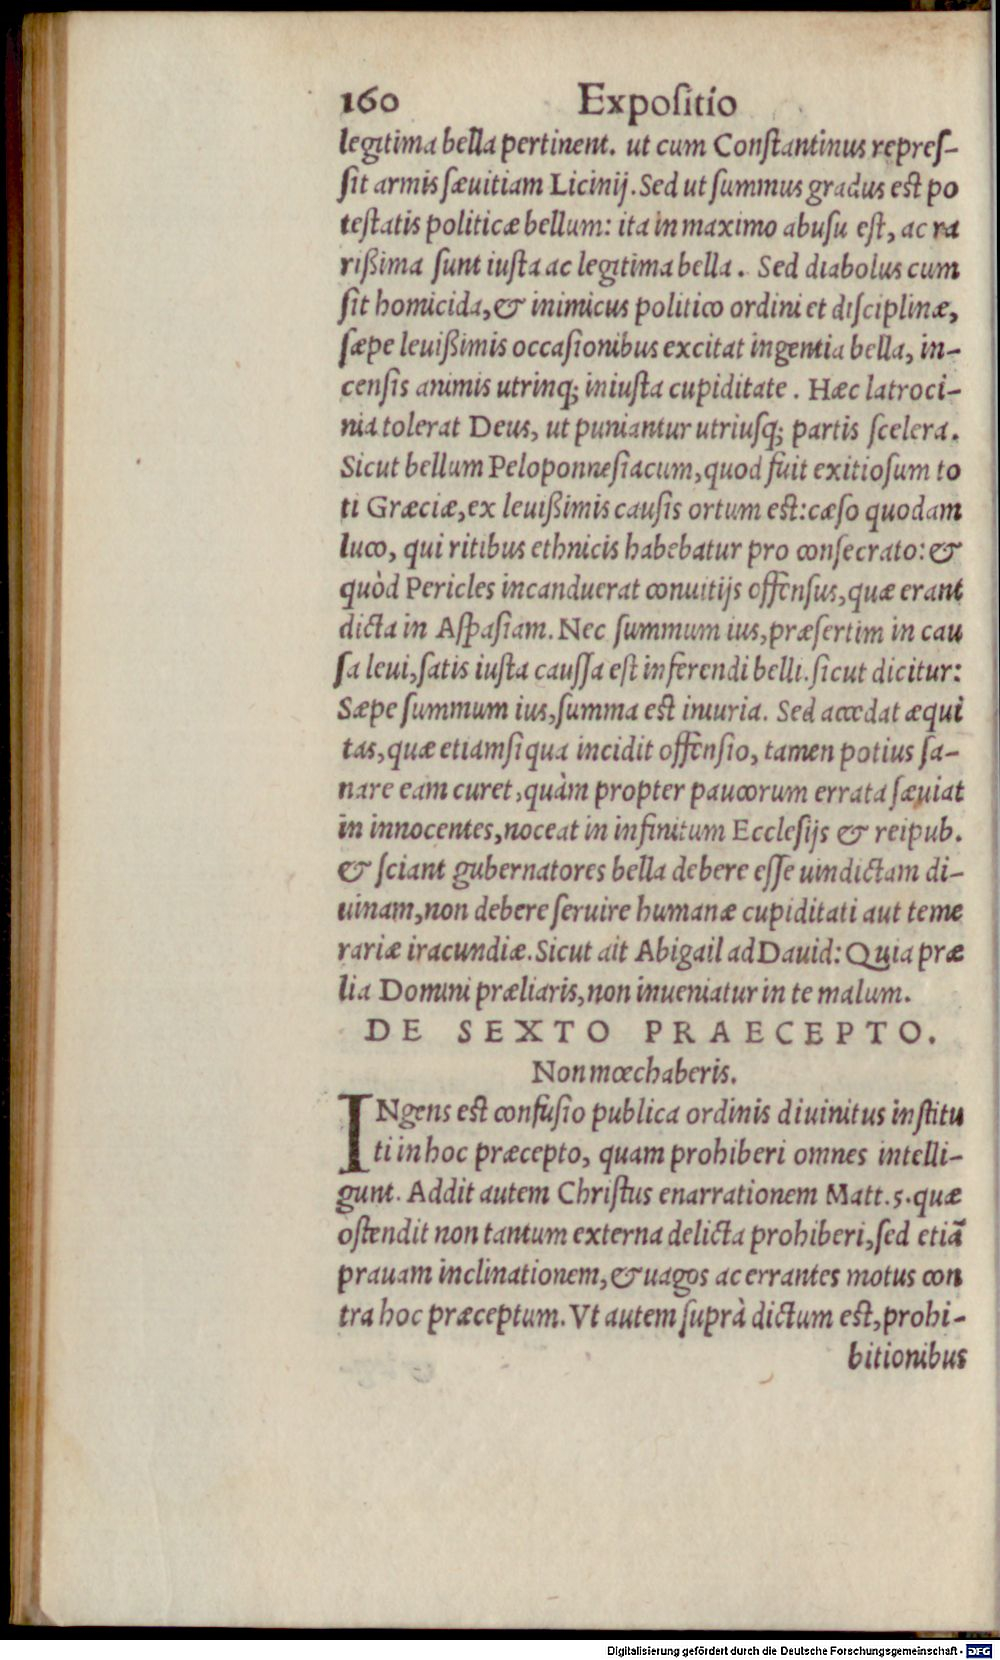 160 Expoſitio
legitima bella pertinent. ut cum Conſtantinus repreſ-
ſit armis ſæuitiam Licinij. Sed ut ſummus gradus est po
teſtatis politicæ bellum: ita in maximo abuſu eſt, ac ra
rißima ſunt iuſta ac legitima bella. Sed diabolus cum
ſit homicida, & inimicus politico ordini et diſciplinæ,
ſæpe leuißimis occaſionibus excitat ingentia bella, in-
cenſis animis utrinq; iniuſta cupiditate. Hæc latroci-
nia tolerat Deus, ut puniantur utriuſq; partis ſcelera.
Sicut bellum Peloponneſiacum, quod fuit exitioſum to
ti Græciæ, ex leuißimis cauſis ortum est: cæſo quodam
luco, qui ritibus ethnicis habebatur pro conſecrato: &
quòd Pericles incanduerat conuitijs offenſus, quæ erant
dicta in Aſpaſiam. Nec ſummum ius, præſertim in cau
ſa leui, ſatis iuſta cauſſa eſt inferendi belli. ſicut dicitur:
Sæpe ſummum ius, ſumma eſt iniuria. Sed accedat æqui
tas, quæ etiamſi qua incidit offenſio, tamen potius ſa-
nare eam curet, quàm propter paucorum errata ſæuiat
in innocentes, noceat in infinitum Eccleſijs & reipub.
& ſciant gubernatores bella debere eſſe uindictam di-
uinam, non debere ſeruire humanæ cupiditati aut teme
rariæ iracundiæ. Sicut ait Abigail ad Dauid: Quia præ
lia Domini præliaris, non inueniatur in te malum.
DE SEXTO PRAECEPTO.
Non mœchaberis.
INgens est confuſio publica ordinis diuinitus inſtitu
ti in hoc præcepto, quam prohiberi omnes intelli-
gunt. Addit autem Chriſtus enarrationem Matt. 5. quæ
oſtendit non tantum externa delicta prohiberi, ſed etiã
prauam inclinationem, & uagos ac errantes motus con
tra hoc præceptum. Vt autem ſuprà dictum eſt, prohi-
bitionibus
Digitalisierung gefördert durch die Deutsche Forschungsgemeinschaft - DFG